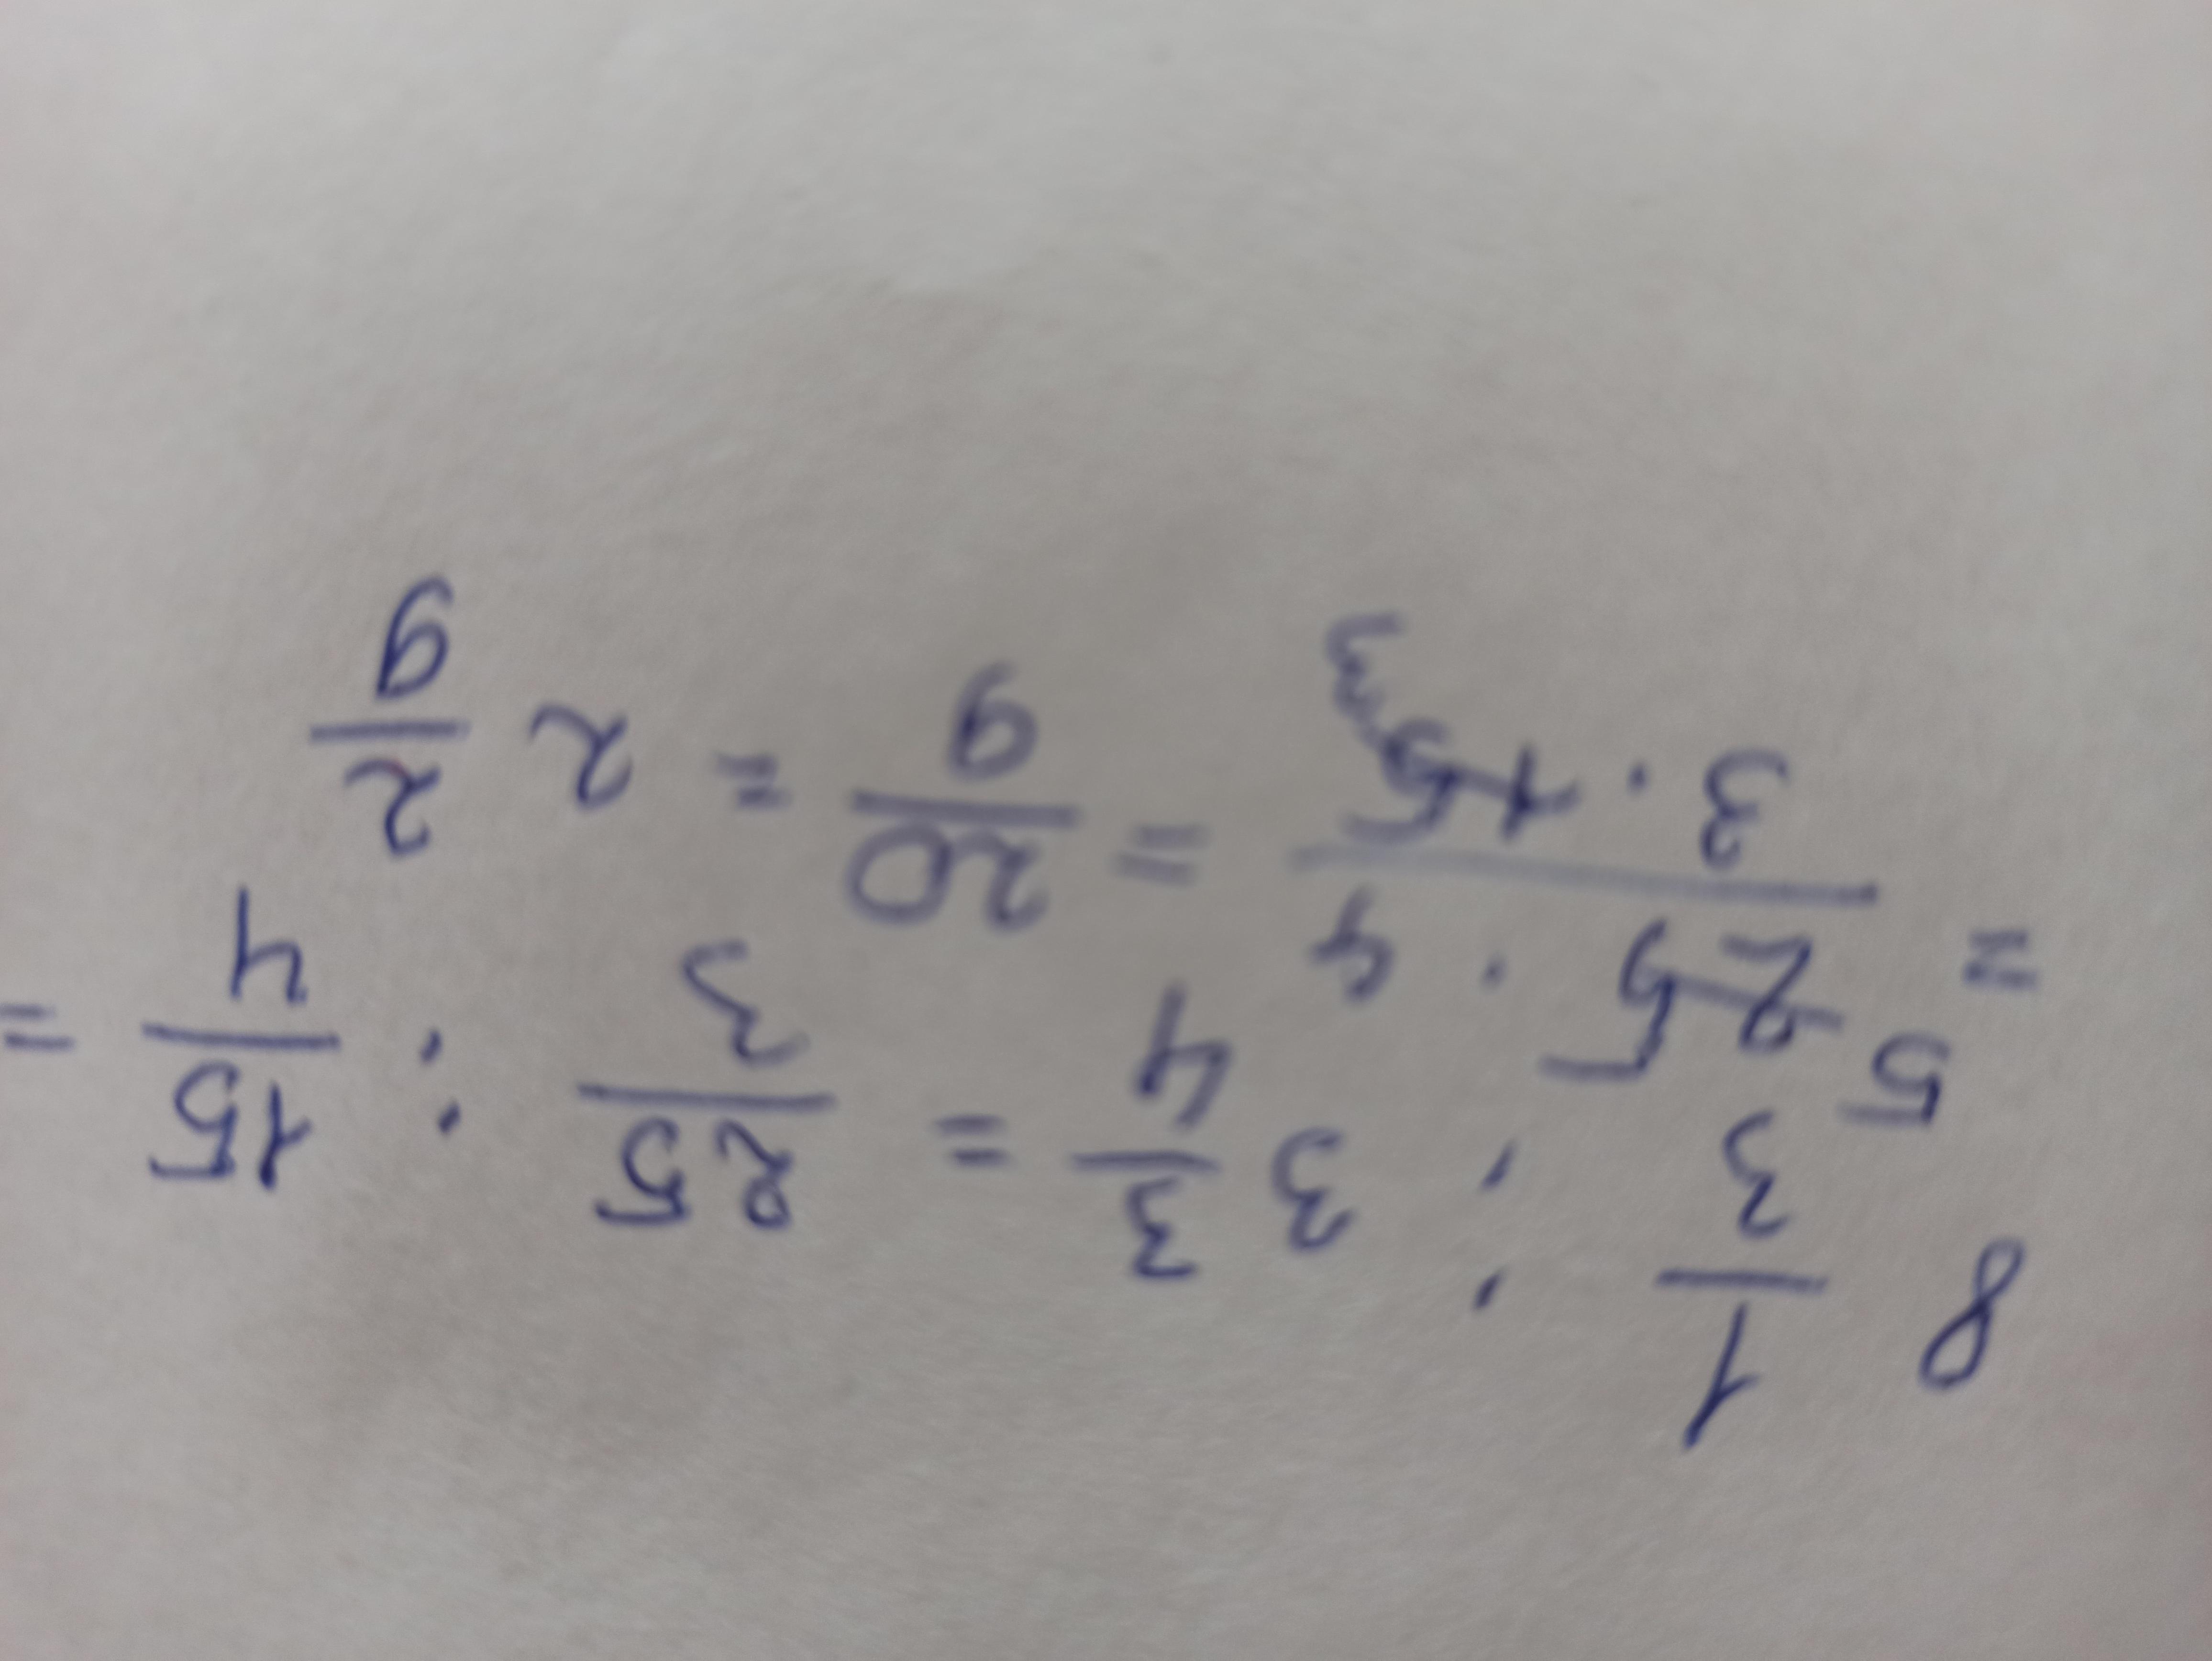 8 1/3 : 3 3/4 = 25/3 : 15/4 =
= 5 25 · 4 / 3 · 15 3 = 20/9 = 2 2/9